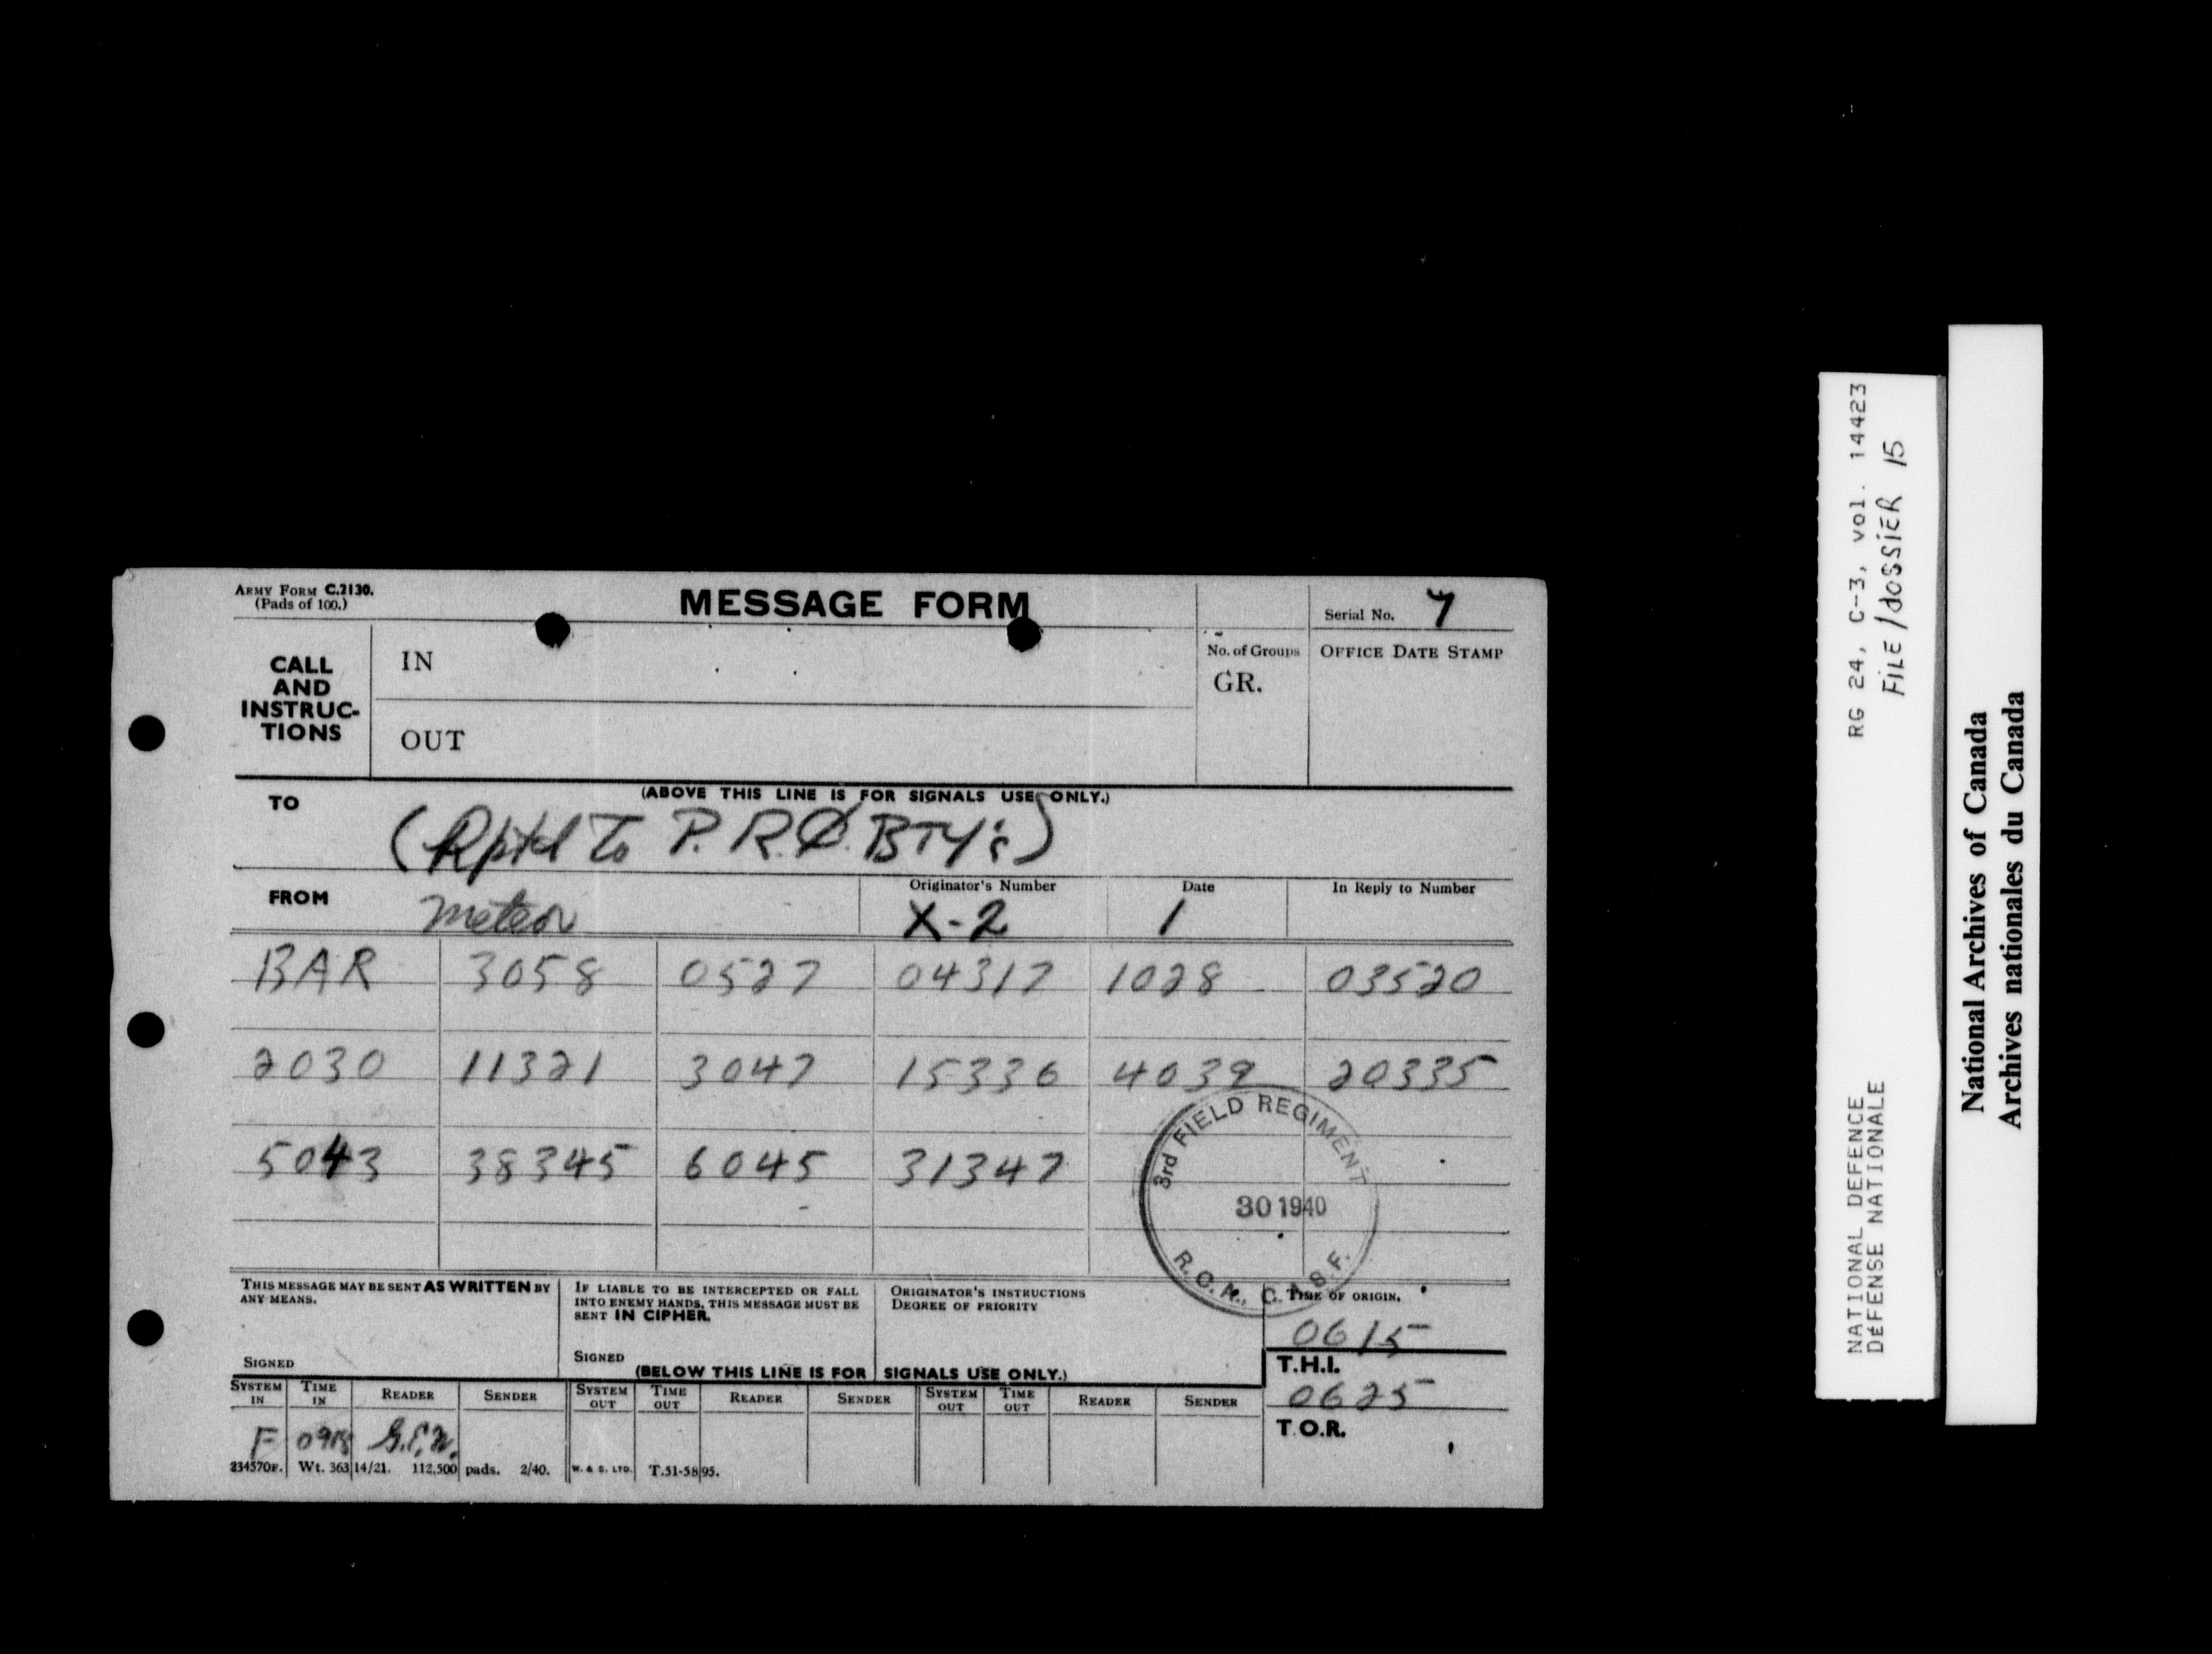 ARMY FORM C.2130.
(Pads of 100.)
MESSAGE FORM
Serial No. 7
CALL AND INSTRUC-TIONS
IN
OUT
No. of Groups
GR.
OFFICE DATE STAMP
(ABOVE THIS LINE IS FOR SIGNALS USE ONLY.)
TO
(Rptd To P.R.Q. BTY's)
FROM Meteor
Originator's Number X-2
Date 1
In Reply to Number
BAR 3058 0527 04317 1028 03520
2030 11321 3047 15336 4039 20335
5043 38345 6045 31347
3rd FIELD REGIMENT
30 1940
R.C.A., C.A.S.F.
THIS MESSAGE MAY BE SENT AS WRITTEN BY
ANY MEANS.
SIGNED
IF LIABLE TO BE INTERCEPTED OR FALL
INTO ENEMY HANDS, THIS MESSAGE MUST BE
SENT IN CIPHER.
SIGNED
ORIGINATOR'S INSTRUCTIONS
DEGREE OF PRIORITY
TIME OF ORIGIN.
0615
T.H.I.
0625
T.O.R.
(BELOW THIS LINE IS FOR SIGNALS USE ONLY.)
SYSTEM IN TIME IN READER SENDER SYSTEM OUT TIME OUT READER SENDER SYSTEM OUT TIME OUT READER SENDER
F
234570F. Wt. 363 14/21. 112,500 pads. 2/40. W. & S. LTD. T.51-5895.
RG 24, C-3, vol. 14423
FILE/dossiER 15
NATIONAL DEFENCE
DÉFENSE NATIONALE
National Archives of Canada
Archives nationales du Canada